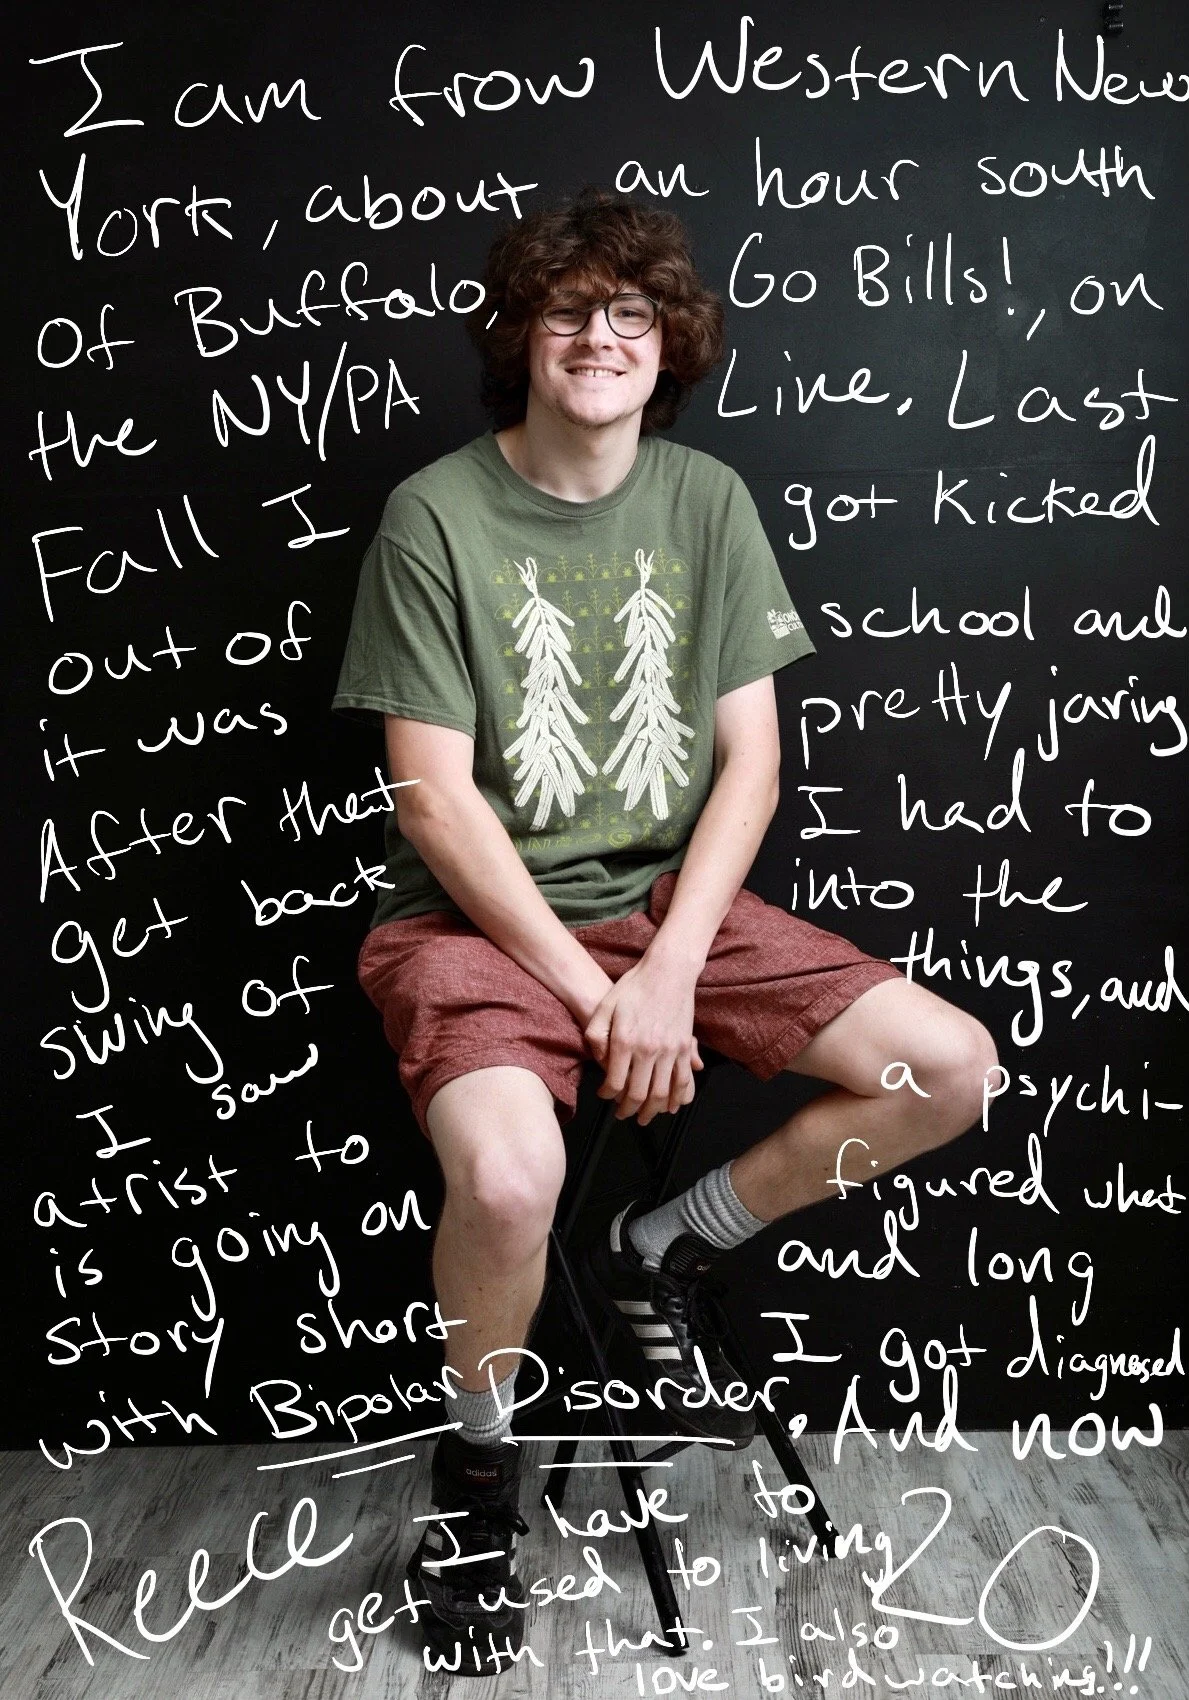 I am from Western New
York, about an hour south
of Buffalo, Go Bills!, on
the NY/PA Line. Last
Fall I got kicked
out of school and
it was pretty jaring
After that I had to
get back into the
swing of things, and
I saw a psychi-
atrist to figured what
is going on and long
story short I got diagnosed
with Bipolar Disorder. And now
I have to
get used to living
with that. I also
love birdwatching!!!
Reece 20
adidas